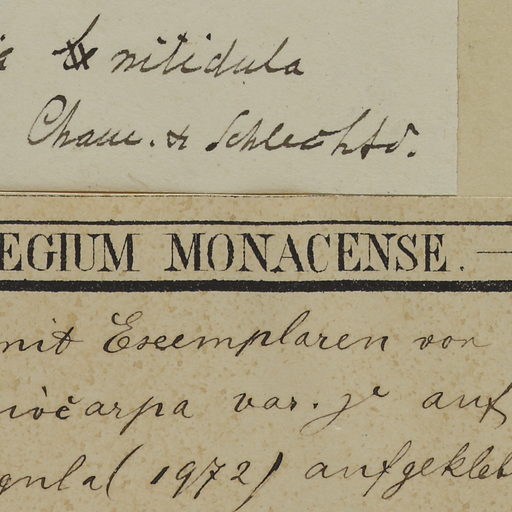 nitidula
Cham. & Schlechtd.
EGIUM MONACENSE.
mit Exemplaren von
iocarpa var. γ auf
gnla (1972) aufgekleb